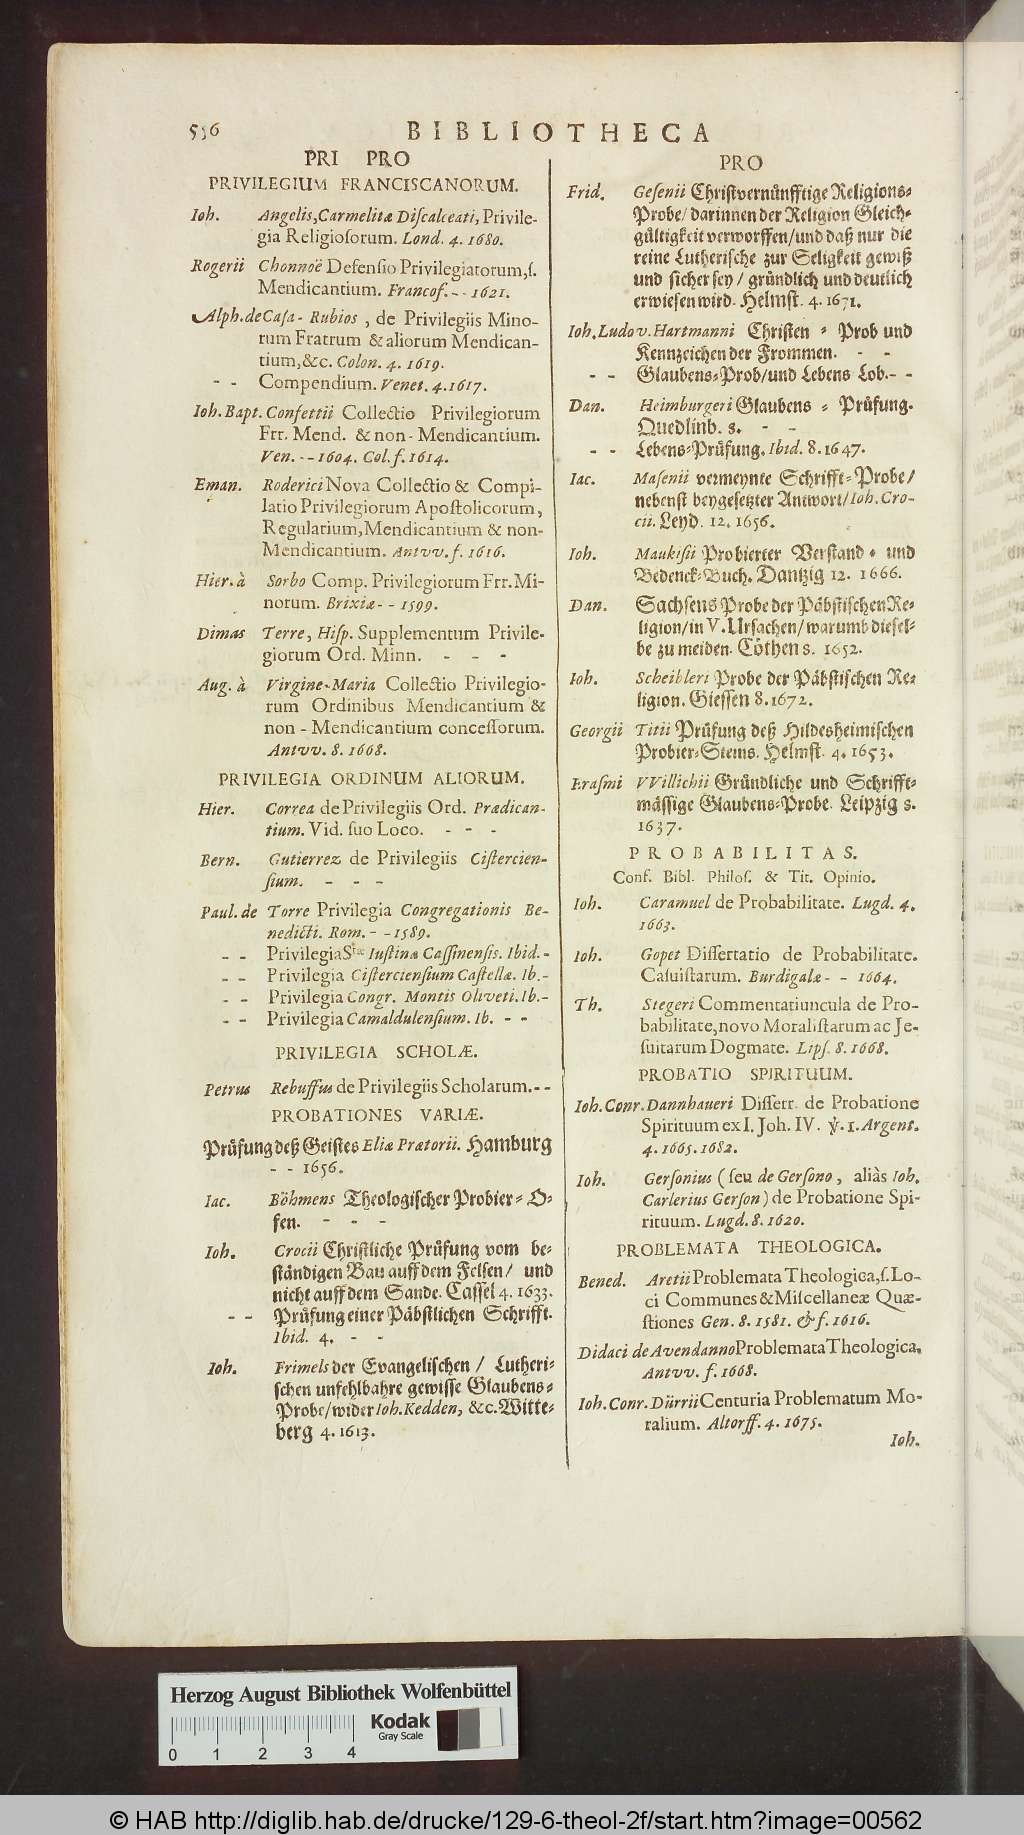 536
BIBLIOTHECA
PRI PRO
PRIVILEGIUM FRANCISCANORUM.
Ioh. Angelis, Carmelitæ Diſcalceati, Privile-
gia Religioſorum. Lond. 4. 1680.
Rogerii Chonnoë Defenſio Privilegiatorum, ſ.
Mendicantium. Francof. - - 1621.
Alph. de Caſa - Rubios, de Privilegiis Mino-
rum Fratrum & aliorum Mendican-
tium, &c. Colon. 4. 1619.
- - Compendium. Venet. 4. 1617.
Ioh. Bapt. Confettii Collectio Privilegiorum
Frr. Mend. & non - Mendicantium.
Ven. - - 1604. Col. f. 1614.
Eman. Roderici Nova Collectio & Compi-
latio Privilegiorum Apoſtolicorum,
Regularium, Mendicantium & non-
Mendicantium. Antvv. f. 1616.
Hier. à Sorbo Comp. Privilegiorum Frr. Mi-
norum. Brixiæ - - 1599.
Dimas Terre, Hiſp. Supplementum Privile-
giorum Ord. Minn. - - -
Aug. à Virgine-Maria Collectio Privilegio-
rum Ordinibus Mendicantium &
non - Mendicantium conceſſorum.
Antvv. 8. 1668.
PRIVILEGIA ORDINUM ALIORUM.
Hier. Correa de Privilegiis Ord. Prædican-
tium. Vid. ſuo Loco. - - -
Bern. Gutierrez de Privilegiis Ciſtercien-
ſium. - - -
Paul. de Torre Privilegia Congregationis Be-
nedicti. Rom. - - 1589.
- - Privilegia Stæ Iuſtinæ Caſſinenſis. Ibid. -
- - Privilegia Ciſtercienſium Caſtellæ. Ib. -
- - Privilegia Congr. Montis Oliveti. Ib. -
- - Privilegia Camaldulenſium. Ib. - -
PRIVILEGIA SCHOLÆ.
Petrus Rebuffus de Privilegiis Scholarum. - -
PROBATIONES VARIÆ.
Prüfung deß Geiſtes Eliæ Prætorii. Hamburg
- - 1656.
Iac. Böhmens Theologiſcher Probier= O=
fen. - - -
Ioh. Crocii Chriſtliche Prüfung vom be=
ſtändigen Bau auff dem Felſen/ und
nicht auff dem Sande. Caſſel 4. 1633.
- - Prüfung einer Päbſtlichen Schrifft.
Ibid. 4. - -
Ioh. Frimels der Evangeliſchen / Lutheri=
ſchen unfehlbahre gewiſſe Glaubens=
Probe/ wider Ioh. Kedden, &c. Witte=
berg 4. 1613.
PRO
Frid. Geſenii Chriſtvernünfftige Religions=
Probe/ darinnen der Religion Gleich=
gültigkeit verworffen/ und daß nur die
reine Lutheriſche zur Seligkeit gewiß
und ſicher ſey / gründlich und deutlich
erwieſen wird. Helmſt. 4. 1671.
Ioh. Ludov. Hartmanni Chriſten = Prob und
Kennzeichen der Frommen. - -
- - Glaubens=Prob/ und Lebens Lob. - -
Dan. Heimburgeri Glaubens = Prüfung.
Quedlinb. 8. - -
- - Lebens=Prüfung. Ibid. 8. 1647.
Iac. Maſenii vermeynte Schrifft=Probe/
nebenſt beygeſetzter Antwort/ Ioh. Cro-
cii. Leyd. 12. 1656.
Ioh. Maukiſii Probierter Verſtand = und
Bedenck=Buch. Dantzig 12. 1666.
Dan. Sachſens Probe der Päbſtiſchen Re=
ligion/ in V. Urſachen/ warumb dieſel=
be zu meiden. Cöthen 8. 1652.
Ioh. Scheibleri Probe der Päbſtiſchen Re=
ligion. Gieſſen 8. 1672.
Georgii Titii Prüfung deß Hildesheimiſchen
Probier=Steins. Helmſt. 4. 1653.
Eraſmi VVillichii Gründliche und Schrifft=
mäſſige Glaubens=Probe. Leipzig 8.
1637.
PROBABILITAS.
Conf. Bibl. Philoſ. & Tit. Opinio.
Ioh. Caramuel de Probabilitate. Lugd. 4.
1663.
Ioh. Gopet Diſſertatio de Probabilitate.
Caſuiſtarum. Burdigalæ - - 1664.
Th. Stegeri Commentatiuncula de Pro-
babilitate, novo Moraliſtarum ac Je-
ſuitarum Dogmate. Lipſ. 8. 1668.
PROBATIO SPIRITUUM.
Ioh. Conr. Dannhaueri Diſſert. de Probatione
Spirituum ex I. Joh. IV. ℣. 1. Argent.
4. 1665. 1682.
Ioh. Gerſonius (ſeu de Gerſono, aliàs Ioh.
Carlerius Gerſon) de Probatione Spi-
rituum. Lugd. 8. 1620.
PROBLEMATA THEOLOGICA.
Bened. Aretii Problemata Theologica, ſ. Lo-
ci Communes & Miſcellaneæ Quæ-
ſtiones Gen. 8. 1581. & f. 1616.
Didaci de Avendanno Problemata Theologica.
Antvv. f. 1668.
Ioh. Conr. Dürrii Centuria Problematum Mo-
ralium. Altorff. 4. 1675.
Ioh.
Herzog August Bibliothek Wolfenbüttel
Kodak
Gray Scale
0 1 2 3 4
© HAB http://diglib.hab.de/drucke/129-6-theol-2f/start.htm?image=00562